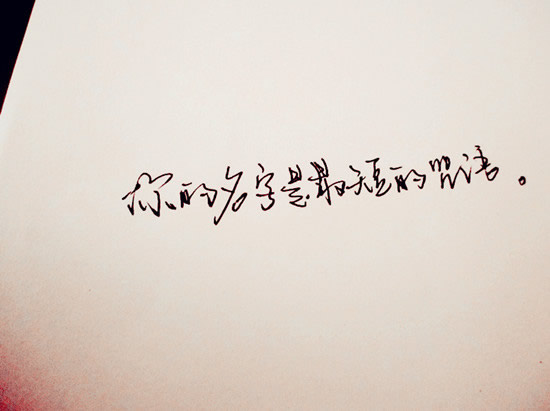 你的名字是最短的咒语。